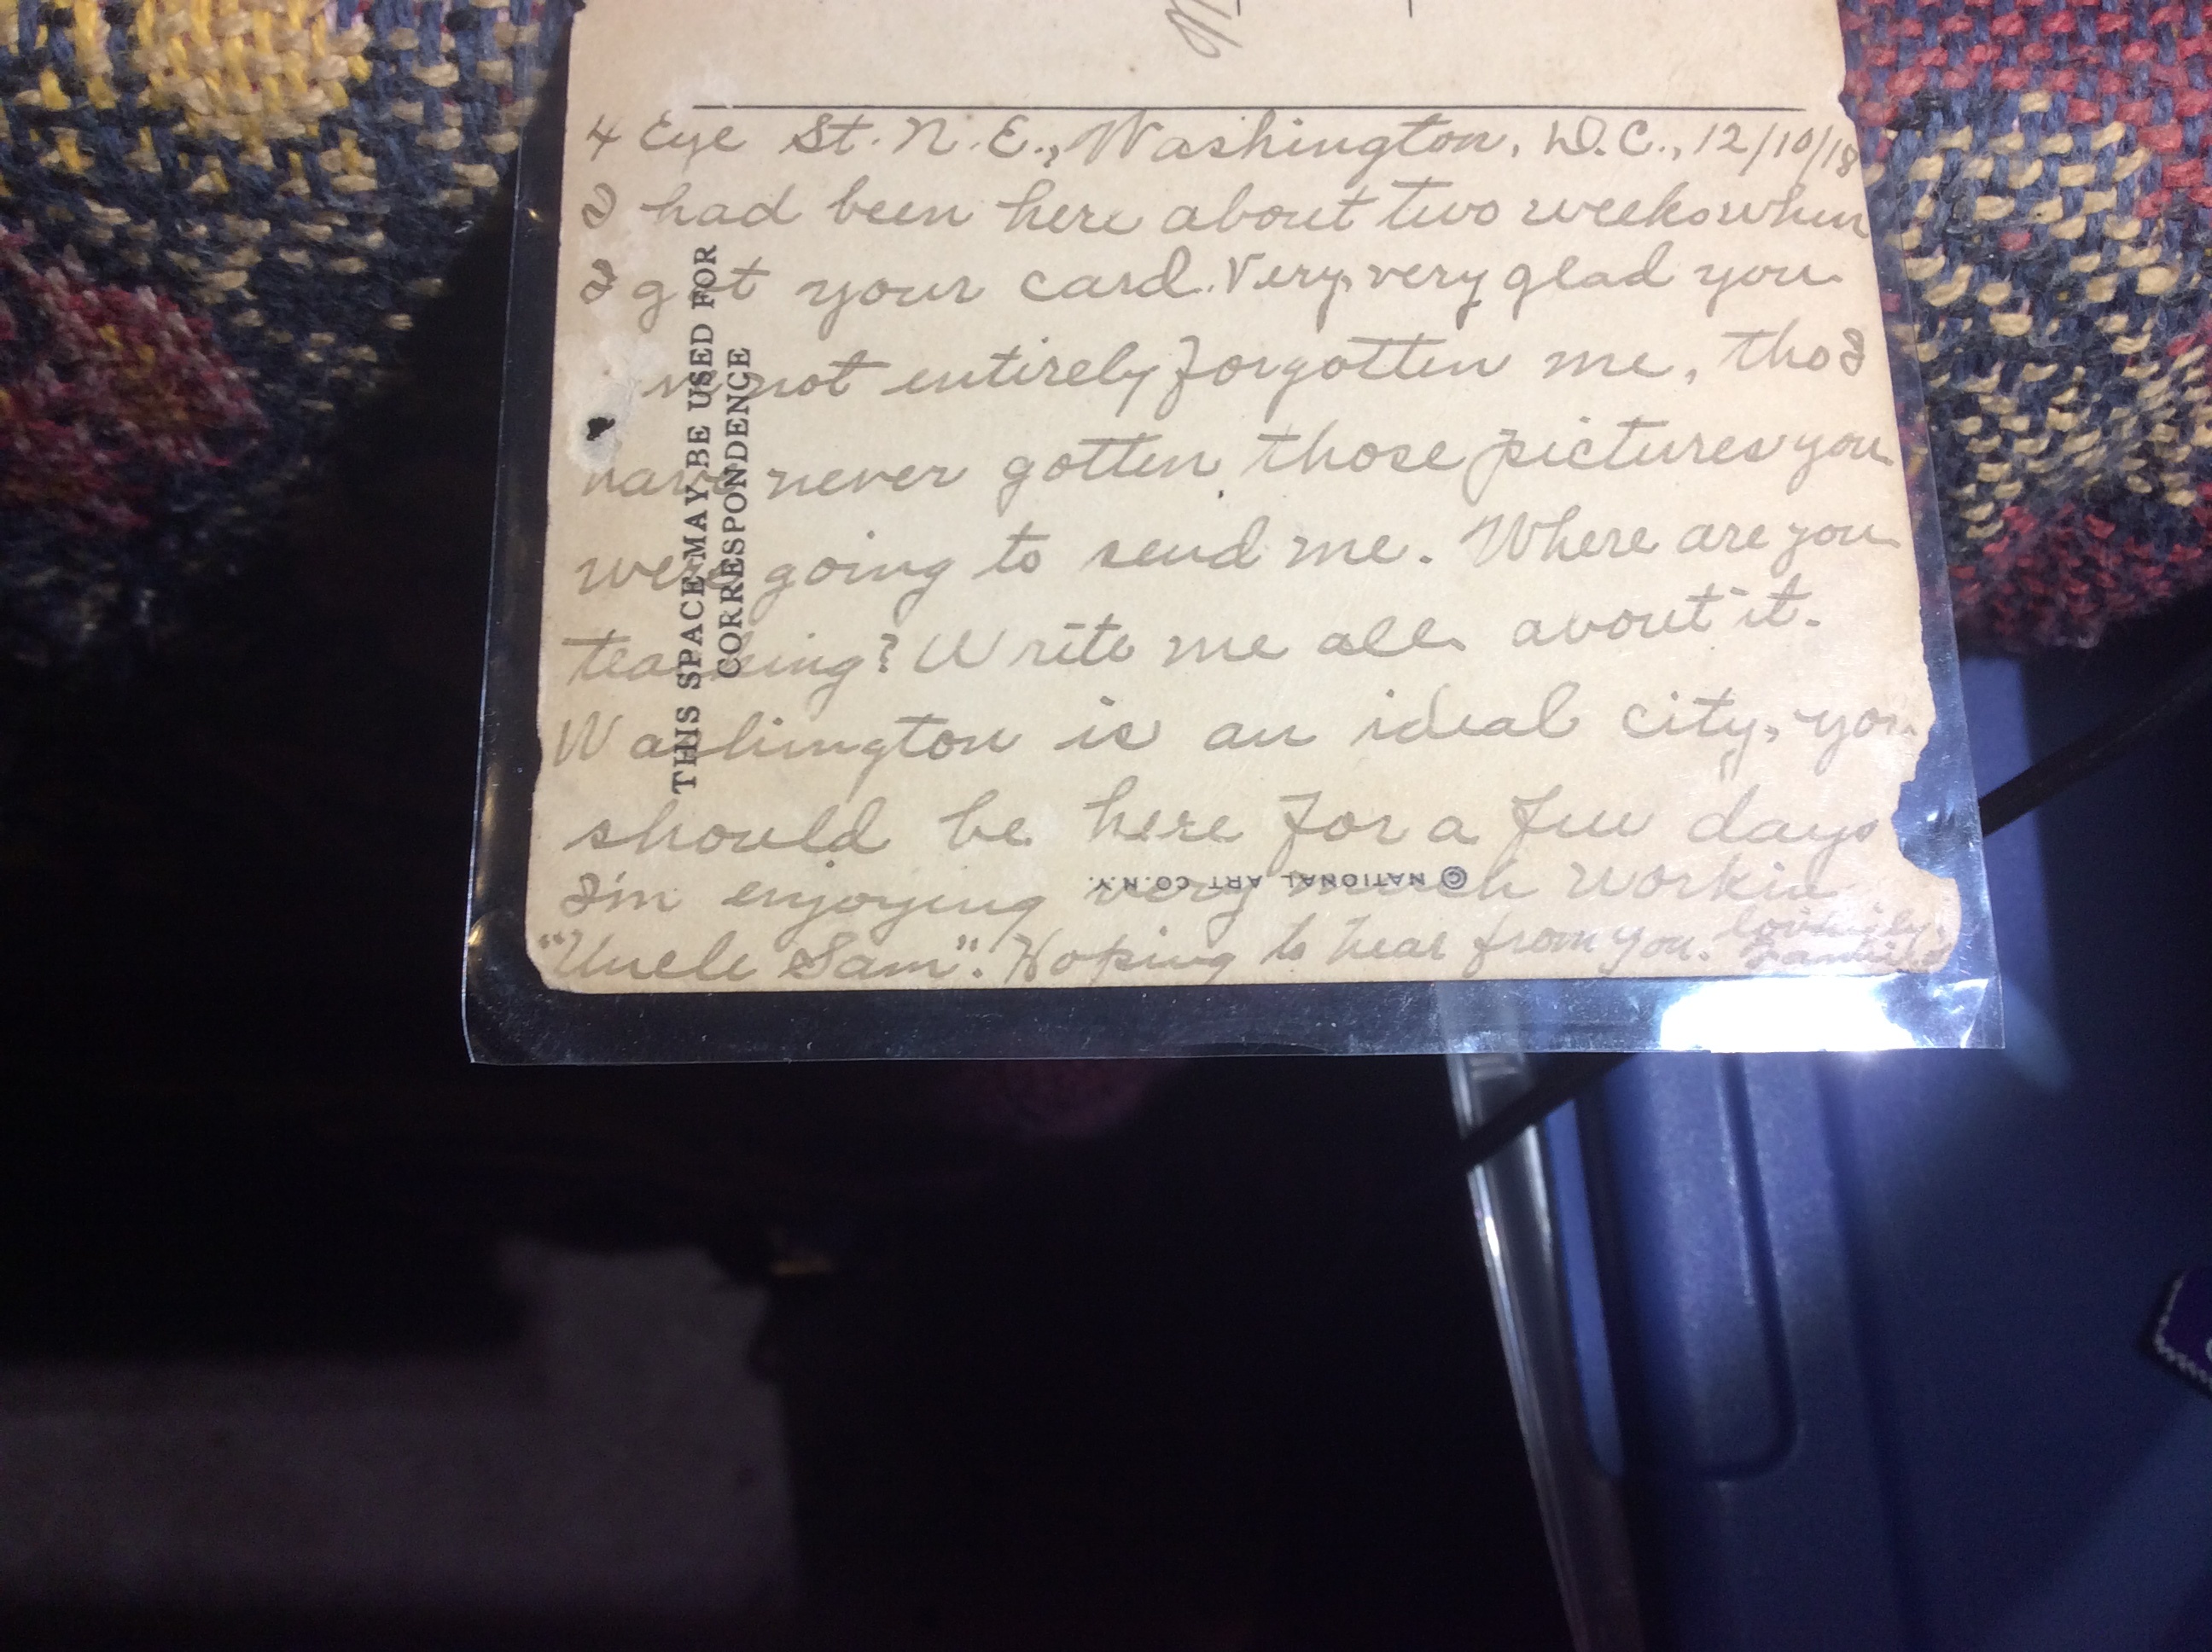 4 Eye St. N.E., Washington, D.C., 12/10/18
I had been here about two weeks when
I got your card. Very, very glad you
not entirely forgotten me, tho I
have never gotten those pictures you
were going to send me. Where are you
teaching? Write me all about it.
Washington is an ideal city, you
should be here for a few days
I'm enjoying very much workin
"Uncle Sam". Hoping to hear from you. Lovingly,
THIS SPACE MAY BE USED FOR
CORRESPONDENCE
© NATIONAL ART CO. N.Y.